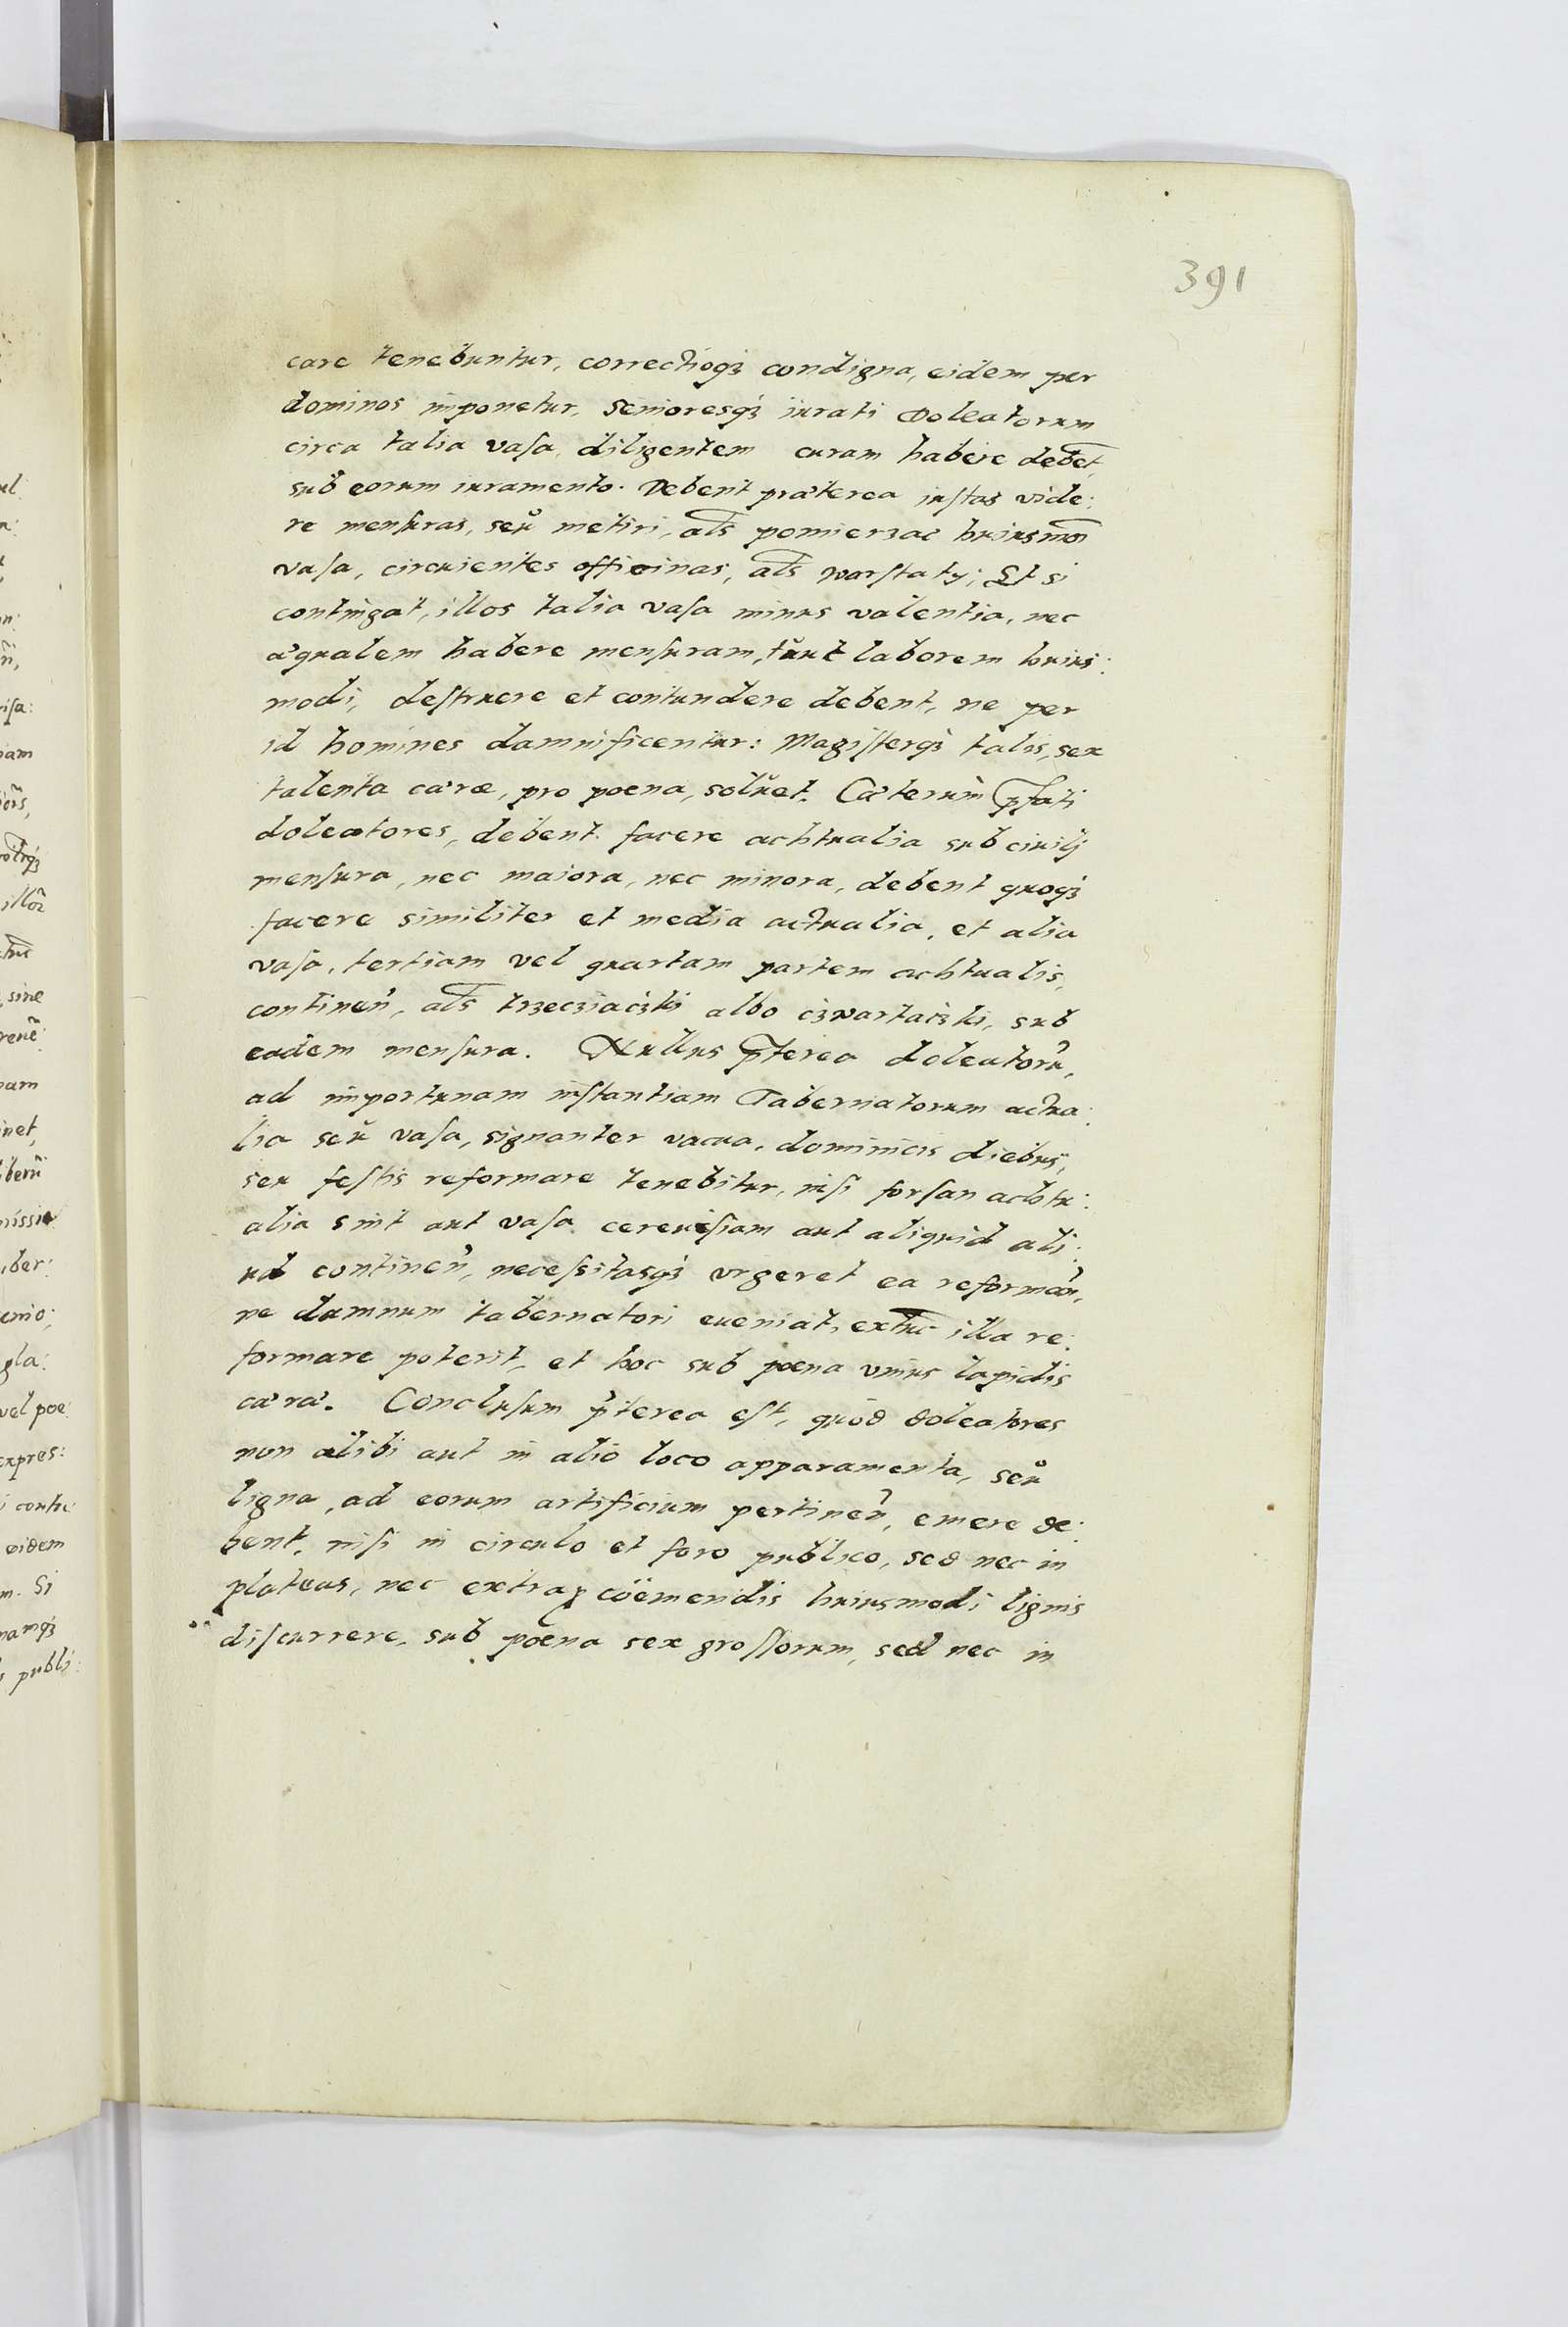 391
care tenebuntur, correctioqꝫ condigna, eidem per
dominos imponetur, Senioresqꝫ iurati Doleatorum
circa talia vasa, diligentem curam habere debẽt,
sub eorum iuramento. Debent præterea iustas vide:
re mensuras, seu metiri, al̃s pomierzac huiusmo͠i
vasa, circuientes officinas, al̃s warstaty; Et si
contingat, illos talia vasa minus valentia, nec
æqualem habere mensuram, tunc laborem huius:
modi, destruere et contundere debent, ne per
id homines damnificentur: Magisterqꝫ talis, sex
talenta cæræ, pro poena, soluet. Cæterum p̃fati
doleatores, debent facere achtualia sub ciuilj
mensura, nec maiora, nec minora, debent quoqꝫ
facere similiter et media actualia, et alia
vasa, tertiam vel quartam partem achtualis,
continen̄, al̃s trzecziaczki albo czwartaczki, sub
eadem mensura. Nullus p̃terea doleatorũ,
ad importunam instantiam Tabernatorum actua:
lia seu vasa, signanter vacua, dominicis diebus,
seu festis reformare tenebitur, nisi forsan achtu:
alia sint aut vasa cereuisiam aut aliquid ali:
ud continen̄, necessitasqꝫ vrgeret ea reforman̄,
ne damnum tabernatori eueniat, extũc illa re:
formare poterit, et hoc sub poena vnius lapidis
cæræ. Conclusum p̃terea est, quod doleatores
non alibi aut in alio loco apparamenta, seu
ligna, ad eorum artificium pertinen̄, emere de:
bent, nisi in circulo et foro publico, sed nec in
plateas, nec extra ꝓ coëmendis huiusmodi lignis
discurrere, sub poena sex grossorum, sed nec in